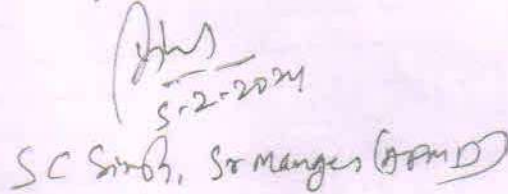 5-2-2024
SC Singh, Sr Manger (APMD)